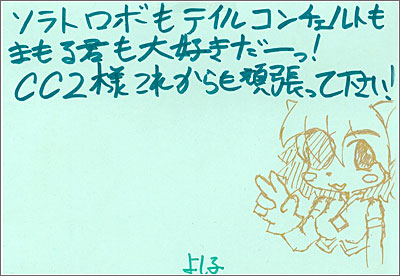 ソラトロボもテイルコンチェルトも
まもる君も大好きだーっ!
CC2様これからも頑張って下さい!
よしこ